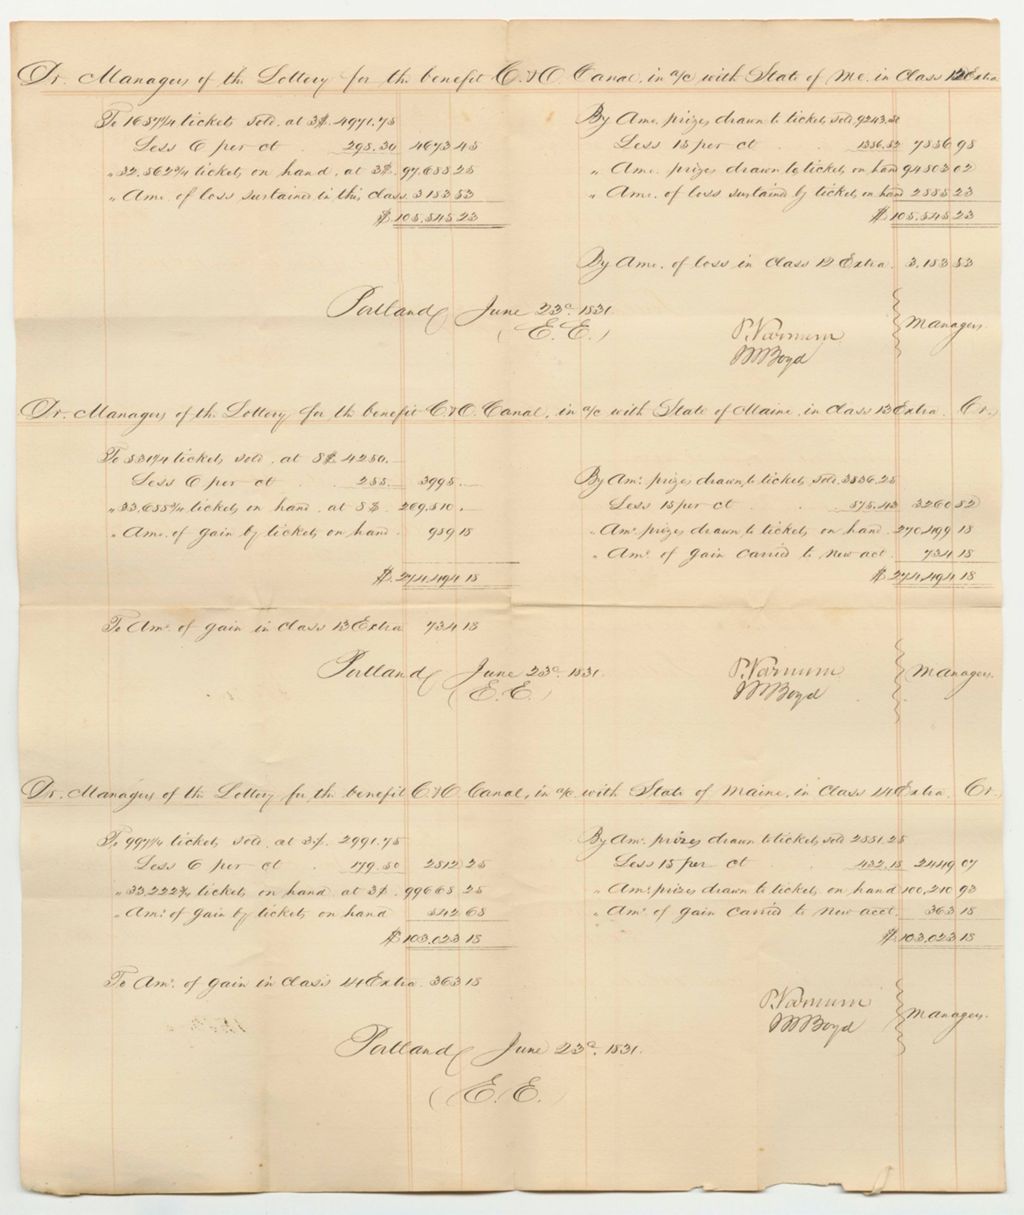 Dr. Managers of the Lottery for the benefit C. & O. Canal, in a/c with State of Me. in Class 12 Extra
To 1657 1/4 tickets sold, at 3$. 4971.75
Less 6 per ct . 298.30 4673 45
" 32.562 3/4 tickets on hand, at 3$. 97.688 25
" Amt. of loss sustained in this class. 3183 53
$ 105.545 23
By Amt. prizes drawn to tickets sold, 9243.50
Less 15 per ct . 1386.52 7856 98
" Amt. prizes drawn to tickets on hand 94803 02
" Amt. of loss sustained by tickets on hand 2885 23
$ 105.545 23
By Amt. of loss in Class 12 Extra. 3.183 53
Portland June 23d. 1831.
(E.E.)
P. Varnum
J M Boyd
Managers.
Dr. Managers of the Lottery for the benefit C. & O. Canal, in a/c with State of Maine, in Class 13 Extra. Cr.
To 531 1/4 tickets sold, at 8$. 4250.
Less 6 per ct . 255. 3995.
" 33.688 3/4 tickets on hand, at 8$. 269,510.
" Amt. of gain by tickets on hand. 989 18
$ 274,494 18
By Amt. prizes drawn, to tickets sold. 3836.25
Less 15 per ct . 575.43 3260 82
" Amt. prizes drawn to tickets on hand. 270,499 18
" Amt. of gain carried to new act. 734 18
$ 274,494 18
To Amt. of gain in Class 13 Extra 734 18
Portland June 23d. 1831.
(E.E.)
P. Varnum
J M Boyd
Managers.
Dr. Managers of the Lottery for the benefit C. & O. Canal, in a/c. with State of Maine, in Class 14 Extra. Cr.
To 997 1/4 tickets sold, at 3$. 2991.75
Less 6 per ct . 179.50 2812 25
" 33.222 3/4 tickets on hand at 3$. 99668 25
" Amt. of gain by tickets on hand 542 68
$ 103.023 18
By Amt. prizes drawn to tickets sold 2881.25
Less 15 per ct . 432.18 2449 07
" Amt. prizes drawn to tickets on hand 100,210 93
" Amt. of gain carried to new acct. 363 18
$ 103.023 18
To Amt. of gain in Class 14 Extra. 363 18
P. Varnum
J M Boyd
Managers.
Portland June 23d. 1831.
(E.E.)